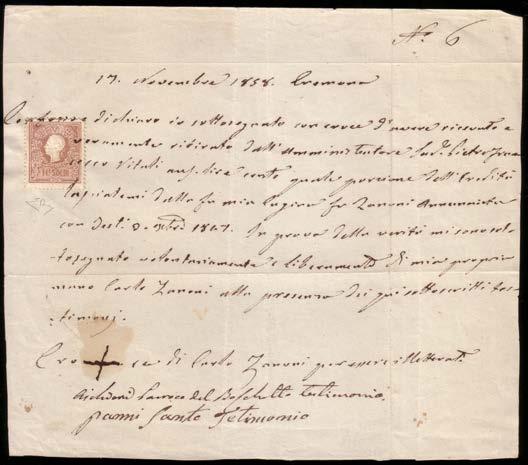 N.º 6
17. Novembre 1858. Cremona
dichiaro io sottosegnato con croce d'avere ricevuto e
veramente dall'Amministratore Sud. Pietro Fran
cesco Vitali cento quale porzione dell'Eredità
lasciatemi dalla fu mia cugina fu Zanoni Annunciata
con 1847. In prova della verità mi sono sot
tosegnato volontariamente e liberamente di mia propria
mano Carlo Zanoni alla presenza dei qui sottoscritti tes
timonj.
10 SOLDI
Cro ce di Carlo Zanoni per essere illetterato
del Boschetto testimonio.
Santo Testimonio